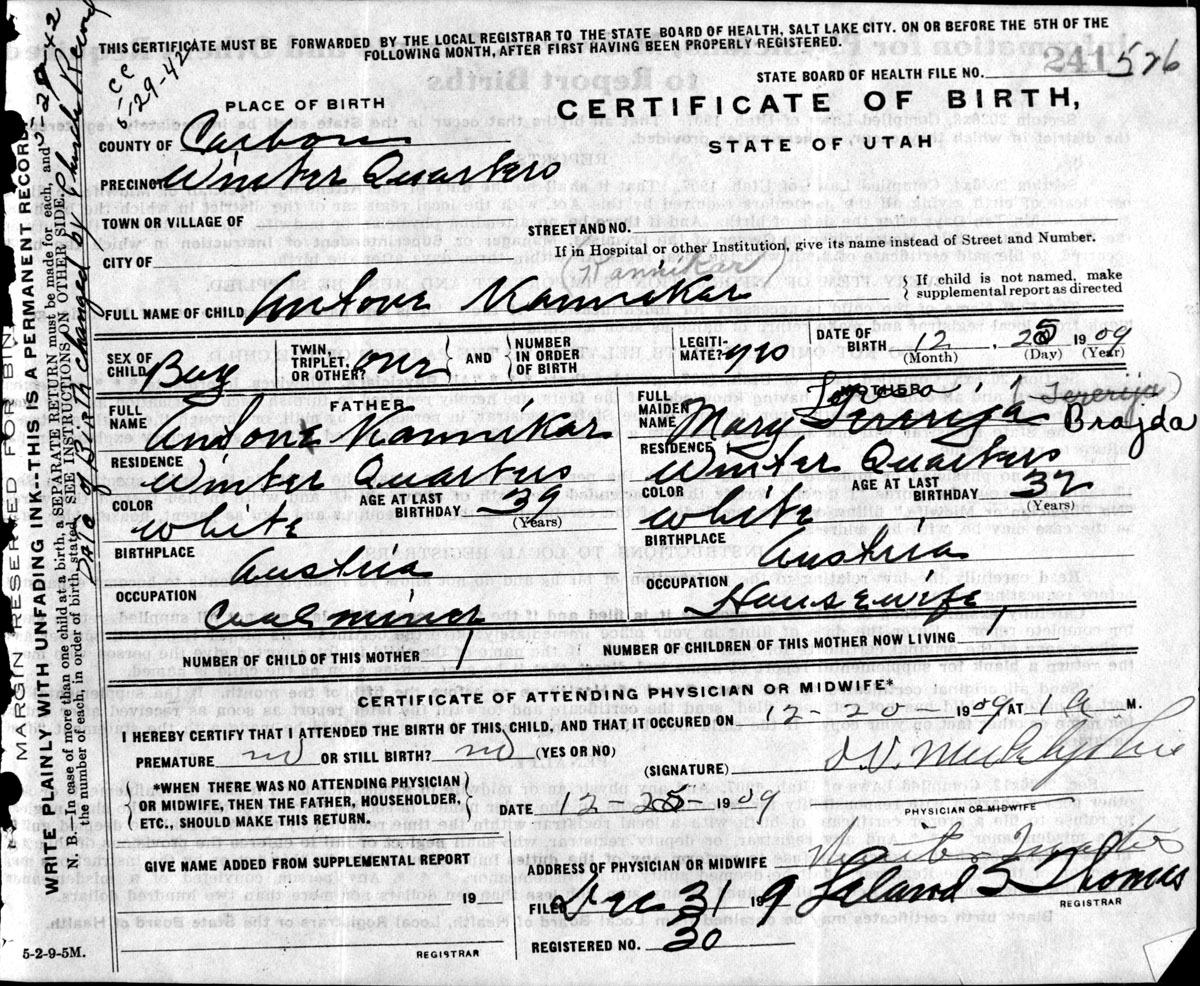 THIS CERTIFICATE MUST BE FORWARDED BY THE LOCAL REGISTRAR TO THE STATE BOARD OF HEALTH, SALT LAKE CITY. ON OR BEFORE THE 5TH OF THE
FOLLOWING MONTH, AFTER FIRST HAVING BEEN PROPERLY REGISTERED.
STATE BOARD OF HEALTH FILE NO. 241 526
CC
6-29-42
PLACE OF BIRTH
CERTIFICATE OF BIRTH,
STATE OF UTAH
COUNTY OF Carbon
PRECINCT Winter Quarters
TOWN OR VILLAGE OF
STREET AND NO.
CITY OF
If in Hospital or other Institution, give its name instead of Street and Number.
FULL NAME OF CHILD Antone
If child is not named, make
supplemental report as directed
SEX OF CHILD Boy
TWIN, TRIPLET, OR OTHER? one
AND NUMBER IN ORDER OF BIRTH
LEGITI-MATE? yes
DATE OF BIRTH 12, 1909
(Month) (Day) (Year)
FATHER
MOTHER
FULL NAME Antone
FULL MAIDEN NAME Mary Brajda
RESIDENCE Winter Quarters
RESIDENCE Winter Quarters
COLOR White
AGE AT LAST BIRTHDAY 39
(Years)
COLOR White
AGE AT LAST BIRTHDAY 32
(Years)
BIRTHPLACE Austria
BIRTHPLACE Austria
OCCUPATION Coal miner
OCCUPATION Housewife
NUMBER OF CHILD OF THIS MOTHER 1
NUMBER OF CHILDREN OF THIS MOTHER NOW LIVING 1
CERTIFICATE OF ATTENDING PHYSICIAN OR MIDWIFE*
I HEREBY CERTIFY THAT I ATTENDED THE BIRTH OF THIS CHILD, AND THAT IT OCCURED ON 12-20- 1909 AT 1 A M.
PREMATURE no OR STILL BIRTH? no (YES OR NO)
(SIGNATURE)
*WHEN THERE WAS NO ATTENDING PHYSICIAN
OR MIDWIFE, THEN THE FATHER, HOUSEHOLDER,
ETC., SHOULD MAKE THIS RETURN.
DATE 12 1909
PHYSICIAN OR MIDWIFE
GIVEN NAME ADDED FROM SUPPLEMENTAL REPORT
19
REGISTRAR
ADDRESS OF PHYSICIAN OR MIDWIFE Winter Quarters
FILED Dec 31 19 9 Leland S Thomas
REGISTRAR
REGISTERED NO. 30
5-2-9-5M.
MARGIN RESERVED FOR BIN
WRITE PLAINLY WITH UNFADING INK--THIS IS A PERMANENT RECORD
N. B.—In case of more than one child at a birth, a SEPARATE RETURN must be made for each, and
the number of each, in order of birth, stated. SEE INSTRUCTIONS ON OTHER SIDE.
Date of Birth changed by Church Record